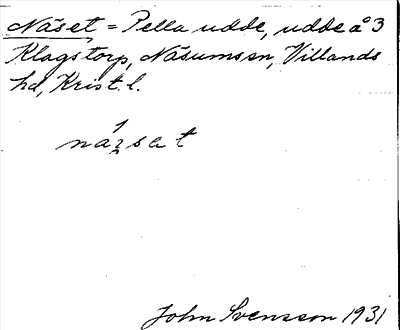 Näset = Pella udde, udde å 3
Klagstorp, Näsums sn, Villands
hd, Krist. l.
náʒsat
John Svensson 1931